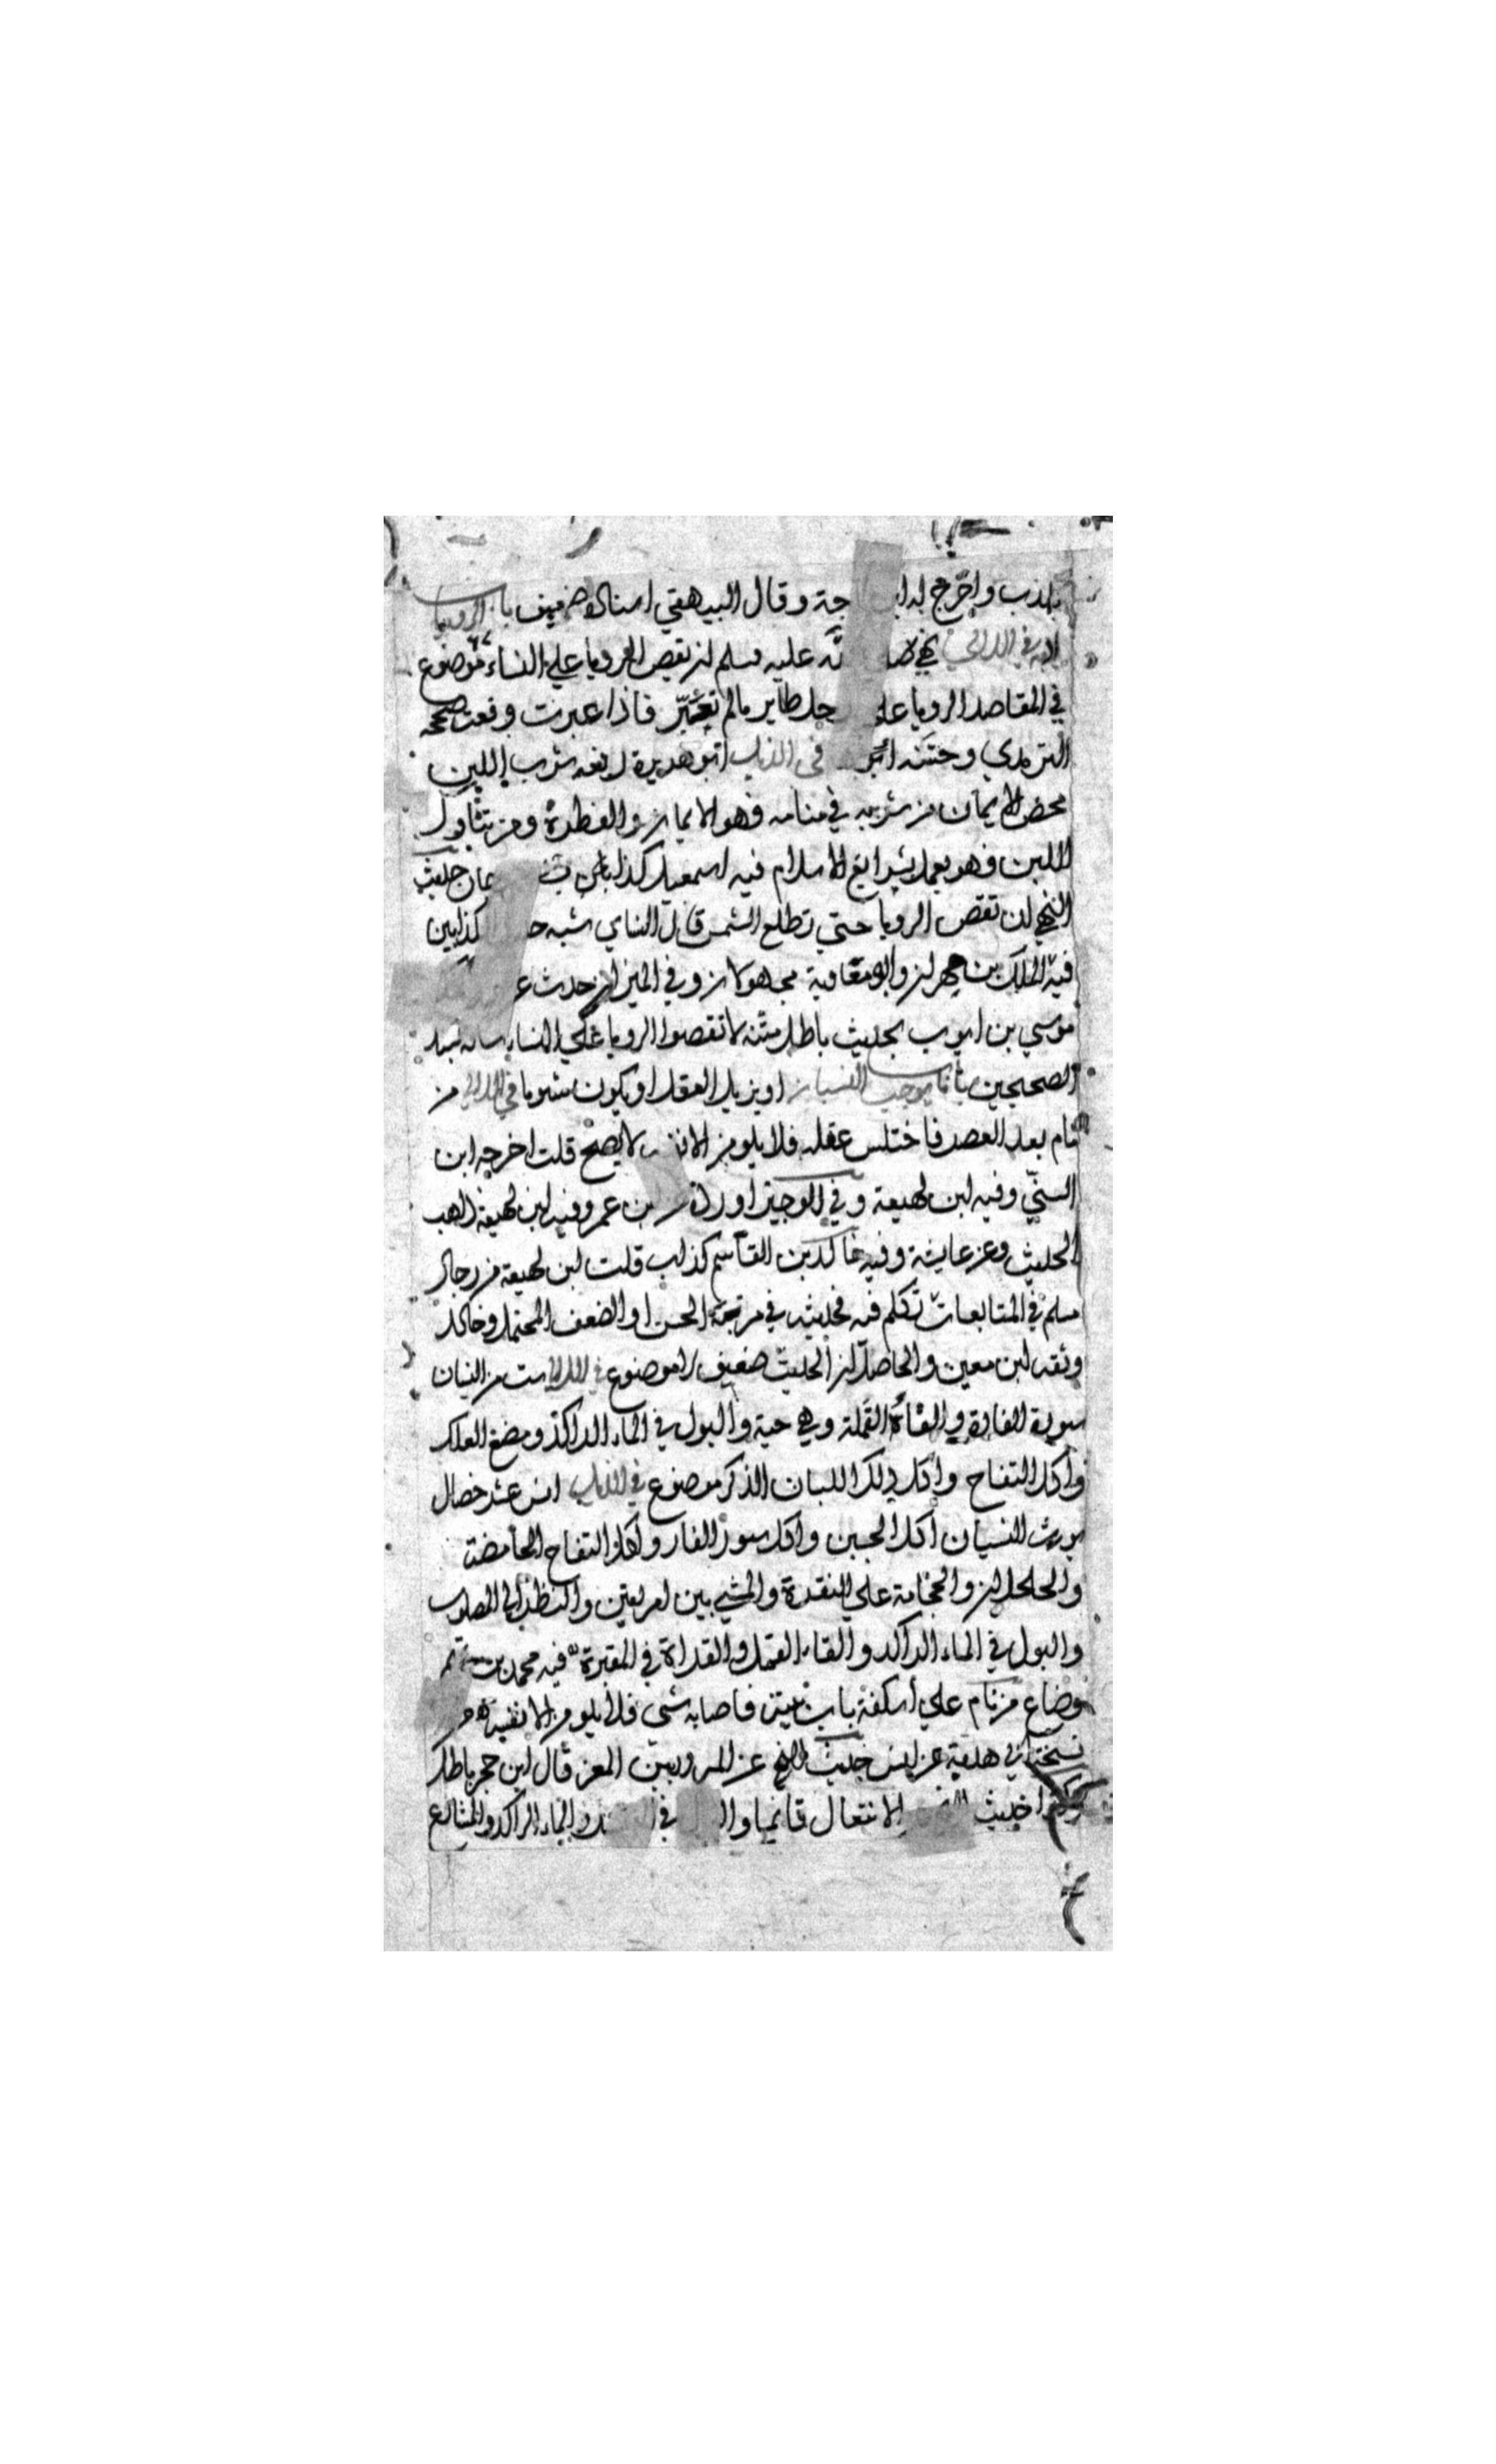 يكذب واخرج له ابن جة وقال البيهقي اسناده ضعيف باب الرويا
في اللالي نهي صلى الله عليه وسلم ان يقص الرويا علي النساء موضوع
في المقاصد الرويا علي جل طاير مالم تعبر فاذا عبرت وقعت صححه
الترمدي وحسنه في الذيل ابو هريرة رفعه شرب اللبن
محض الايمان من شربه في منامه فهو الايمان والفطرة ومن يتناول
اللبن فهو يعمل بشرايع الاسلام فيه اسمعيل كذاب حديث
النهي ان تقص الرويا حتي تطلع الشمس قال النساي شبه كذابين
فيه الملك بن مهران وابو معاوية مجهولان وفي الميزان حدث
موسي بن ايوب بحديث باطل متنه لا تقصوا الرويا علي النساء
الصحيحين باب ما يوجب النسيان او يزيل العقل او يكون شوما في اللالي من
نام بعد العصر فاختلس عقله فلا يلومن الا نفسه لا يصح قلت اخرجه ابن
السني وفيه ابن لهيعة وفي الوجيز اورده عن ابن عمرو فيه ابن لهيعة ذاهب
الحديث وعن عايشة وفيه خالد بن القاسم كذاب قلت ابن لهيعة من رجال
مسلم في المتابعات تكلم فيه فحديثه في مرتبة الحسن او الضعف المحتمل وخالد
وثقه ابن معين والحاصل ان الحديث ضعيف لا موضوع في اللالي ست من النسيان
سور الفارة والقاء القملة وهي حية والبول في الماء الراكد ومضغ العلك
واكل التفاح واكل ذلك اللبان الذكر موضوع في الذيل انس عشر خصال
يورث النسيان اكل الجبن واكل سور الفار واكل التفاح الحامضة
والجلجلان والحجامة علي النقرة والمشي بين امريتين والنظر الي المصلوب
والبول في الماء الراكد والقاء القمل والقراة في المقبرة فيه محمد بن تميم
وضاع من نام علي اسكفة باب بيته فاصابه شي فلا يلومن الا نفسه من
نسخة ابي هدبة عن انس حديث النهي عن المرور بين المعز قال ابن حجر باطل
وكذا حديث الانتعال قايما في الماء الراكد والمشالع